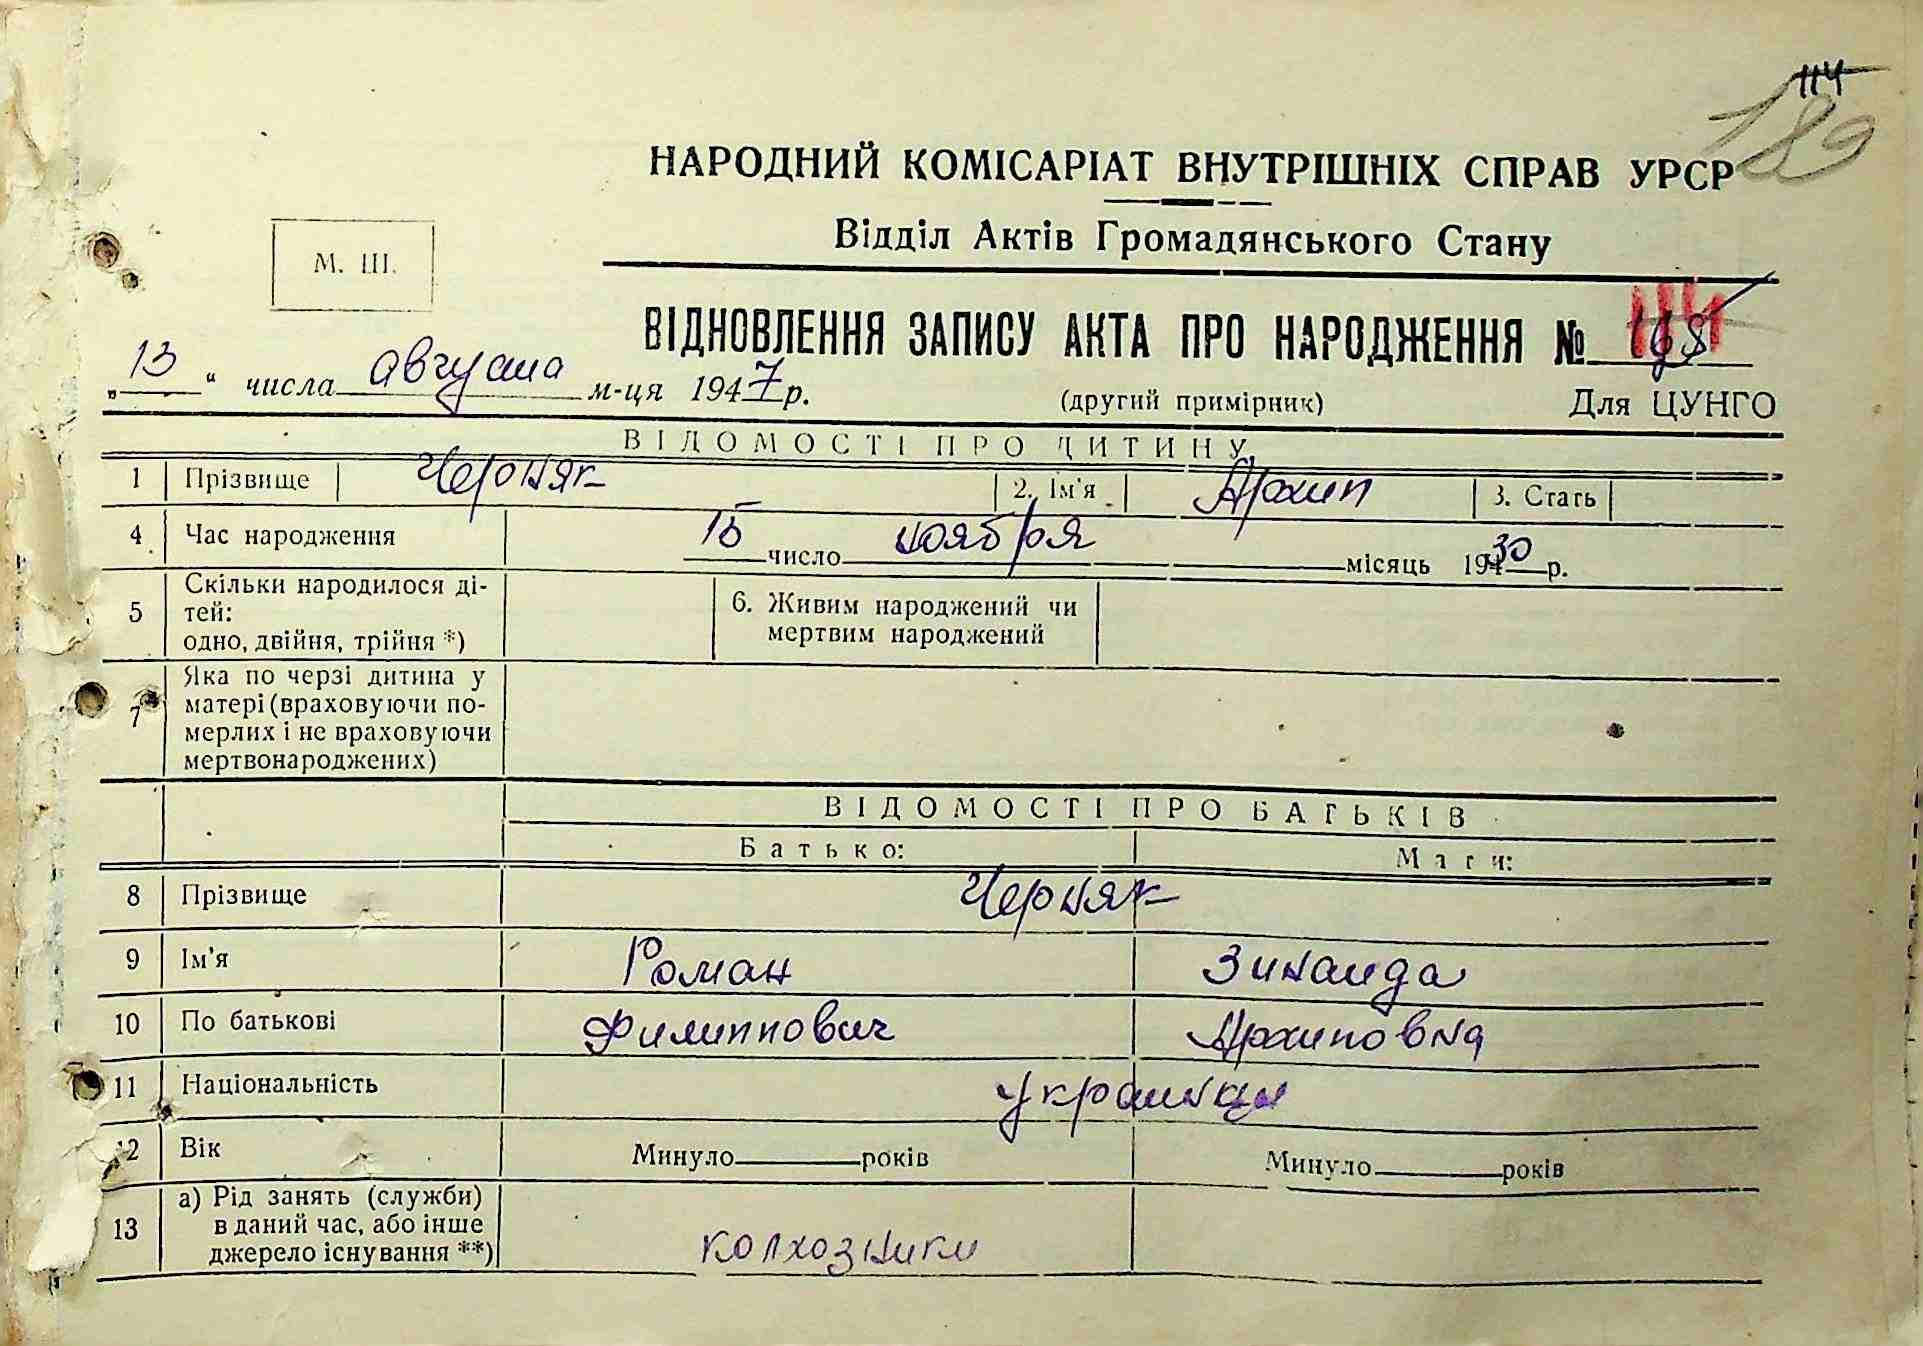 114
189
НАРОДНИЙ КОМІСАРІАТ ВНУТРІШНІХ СПРАВ УРСР
Відділ Актів Громадянського Стану
М. Ш.
ВІДНОВЛЕННЯ ЗАПИСУ АКТА ПРО НАРОДЖЕННЯ № 114
„13“ числа августа м-ця 1947 р. (другий примірник) Для ЦУНГО
ВІДОМОСТІ ПРО ДИТИНУ
1 Прізвище Черняк 2. Ім'я Архип 3. Стать
4 Час народження 15 число ноября місяць 1930 р.
5 Скільки народилося ді-
тей:
одно, двійня, трійня *)
6. Живим народжений чи
мертвим народжений
7 Яка по черзі дитина у
матері (враховуючи по-
мерлих і не враховуючи
мертвонароджених)
ВІДОМОСТІ ПРО БАТЬКІВ
Батько: Мати:
8 Прізвище Черняк
9 Ім'я Роман Зинаида
10 По батькові Филиппович Архиповна
11 Національність украинцы
12 Вік Минуло років Минуло років
13 а) Рід занять (служби)
в даний час, або інше
джерело існування **) колхозники